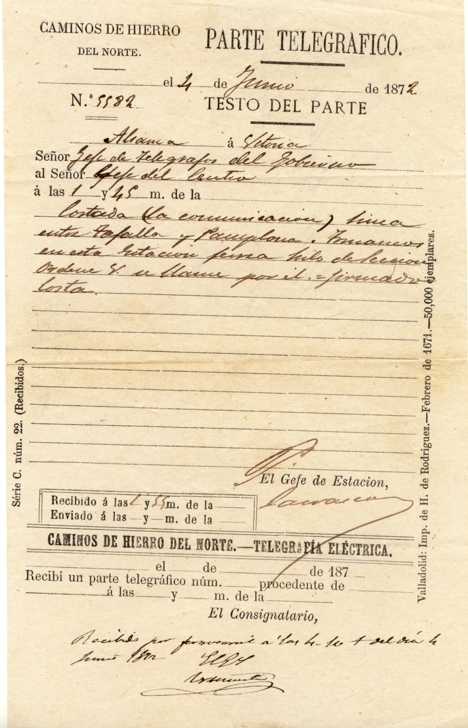 CAMINOS DE HIERRO
DEL NORTE.
PARTE TELEGRAFICO.
el 4 de Junio de 1872
N.º 5582
TESTO DEL PARTE
Alsasua á Vitoria
Señor Gefe de Telegrafos del Gobierno
al Señor Gefe del Centro
á las 1 y 45 m. de la
Cortada (la comunicacion) linea
entre Tafalla y Pamplona.
en esta Estacion hilo de Seccion
Ordene V. se llame por él. = firmado
Costa.
Série C. núm. 22. (Recibidos.)
Valladolid: Imp. de H. de Rodriguez.—Febrero de 1671.—50,000 ejemplares.
El Gefe de Estacion,
Carrascon
Recibido á las 1 y 55 m. de la
Enviado á las y m. de la
CAMINOS DE HIERRO DEL NORTE.—TELEGRAFÍA ELÉCTRICA.
el de de 187
Recibí un parte telegráfico núm. procedente de
á las y m. de la
El Consignatario,
Recibido por á las del dia 4
Junio 1872